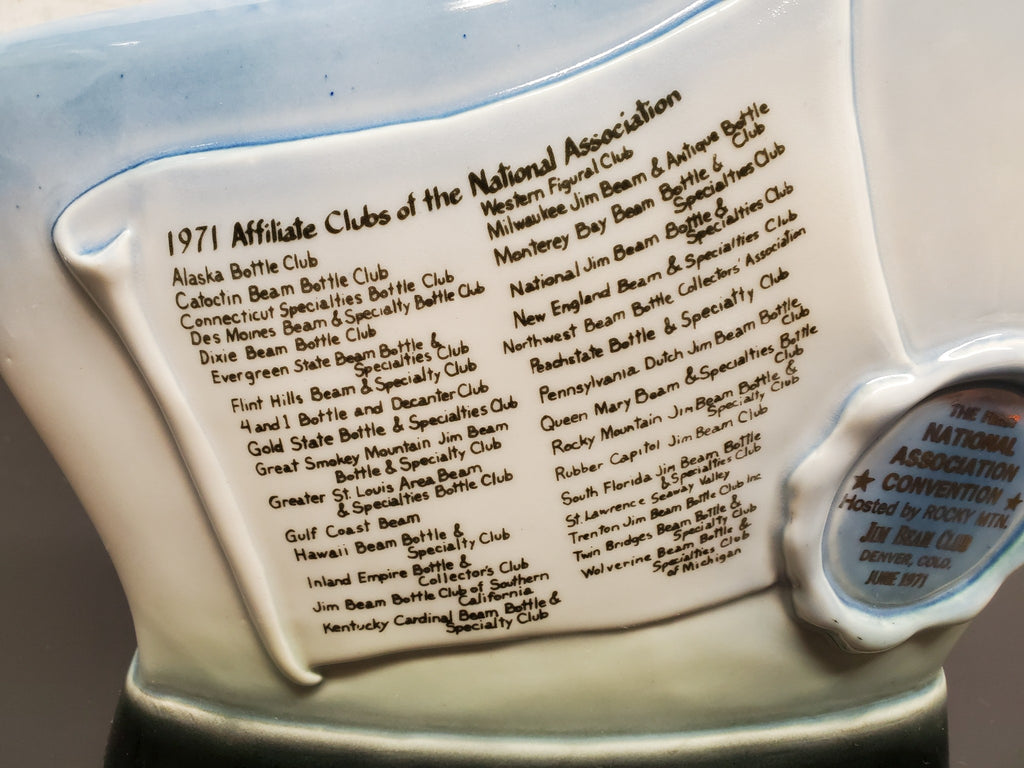 1971 Affiliate Clubs of the National Association
Alaska Bottle Club
Catoctin Beam Bottle Club
Connecticut Specialties Bottle Club
Des Moines Beam & Specialty Bottle Club
Dixie Beam Bottle Club
Evergreen State Beam Bottle &
Specialties Club
Flint Hills Beam & Specialty Club
4 and 1 Bottle and Decanter Club
Gold State Bottle & Specialties Club
Great Smokey Mountain Jim Beam
Bottle & Specialty Club
Greater St. Louis Area Beam
& Specialties Bottle Club
Gulf Coast Beam
Hawaii Beam Bottle &
Specialty Club
Inland Empire Bottle &
Collector's Club
Jim Beam Bottle Club of Southern
California
Kentucky Cardinal Beam Bottle &
Specialty Club
Western Figural Club
Milwaukee Jim Beam & Antique Bottle
Club
Monterey Bay Beam Bottle &
Specialties Club
National Jim Beam Bottle &
Specialties Club
New England Beam & Specialties Club
Northwest Beam Bottle Collectors' Association
Peachstate Bottle & Specialty Club
Pennsylvania Dutch Jim Beam Bottle
Club
Queen Mary Beam & Specialties Bottle
Club
Rocky Mountain Jim Beam Bottle &
Specialty Club
Rubber Capitol Jim Beam Club
South Florida Jim Beam Bottle
& Specialties Club
St. Lawrence Seaway Valley
Trenton Jim Beam Bottle Club Inc
Twin Bridges Beam Bottle &
Specialty Club
Wolverine Beam Bottle &
Specialties Club
of Michigan
THE FIRST
NATIONAL
ASSOCIATION
CONVENTION
Hosted by ROCKY MTN.
JIM BEAM CLUB
DENVER, COLO.
JUNE 1971